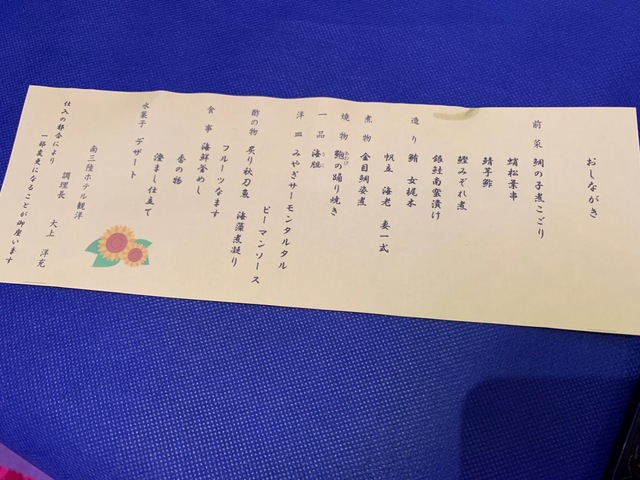 おしながき
前菜 鯛の子煮こごり
蛸松葉串
鯖芋鮓
鰹みぞれ煮
銀鮭南蛮漬け
造り 鮪 女梶木
帆立 海老 妻一式
煮物 金目鯛姿煮
焼物 鮑の踊り焼き
一品 海胆
洋皿 みやぎサーモンタルタル
ピーマンソース
酢の物 炙り秋刀魚 海藻煮凝り
フルーツなます
食事 海鮮釜めし
香の物
澄まし仕立て
水菓子 デザート
南三陸ホテル観洋
調理長 大上 洋充
仕入の都合により
一部変更になることが御座います